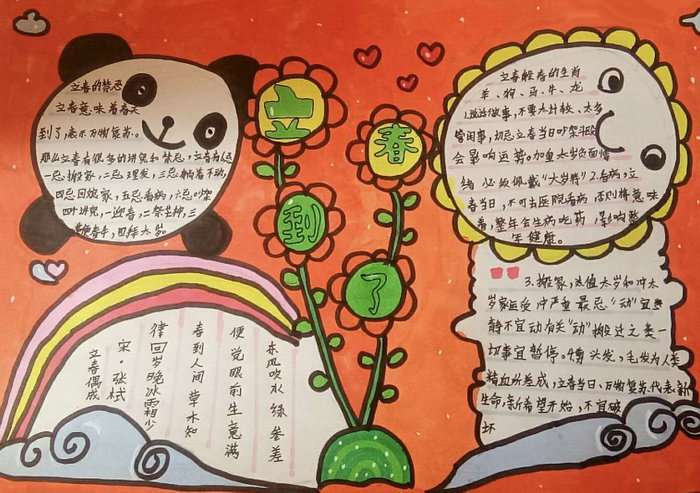 立春的禁忌
立春意味着春天
到了,表示万物复苏。
那么立春有很多的讲究和禁忌,立春有六忌
一忌搬家,二忌理发,三忌躺着不动,
四忌回娘家,五忌看病,六忌吵架
四个讲究,一迎春,二祭芒神,三
鞭春牛,四拜太岁。
立
春
到
了
立春躲春的生肖
羊、狗、马、牛、龙
1.说话做事,不要太计较、太多
管闲事,切忌立春当日吵架斗殴
会影响运算。加重太岁负面情
绪 必须佩戴“太岁锦”2.看病,立
春当日,不可去医院看病 否则将意味
着,整年会生病吃药,影响整
年健康。
3.搬家,尤值太岁和冲太
岁家运受冲严重 最忌“动”宜
静不宜动有关“动”搬迁之类一
切事宜暂停。4.剪头发,毛发为人类
精血所养成,立春当日,万物复苏代表新
生命,新希望开始,不宜破
坏
立春偶成
宋·张栻
律回岁晚冰霜少
春到人间草木知
便觉眼前生意满
东风吹水绿参差